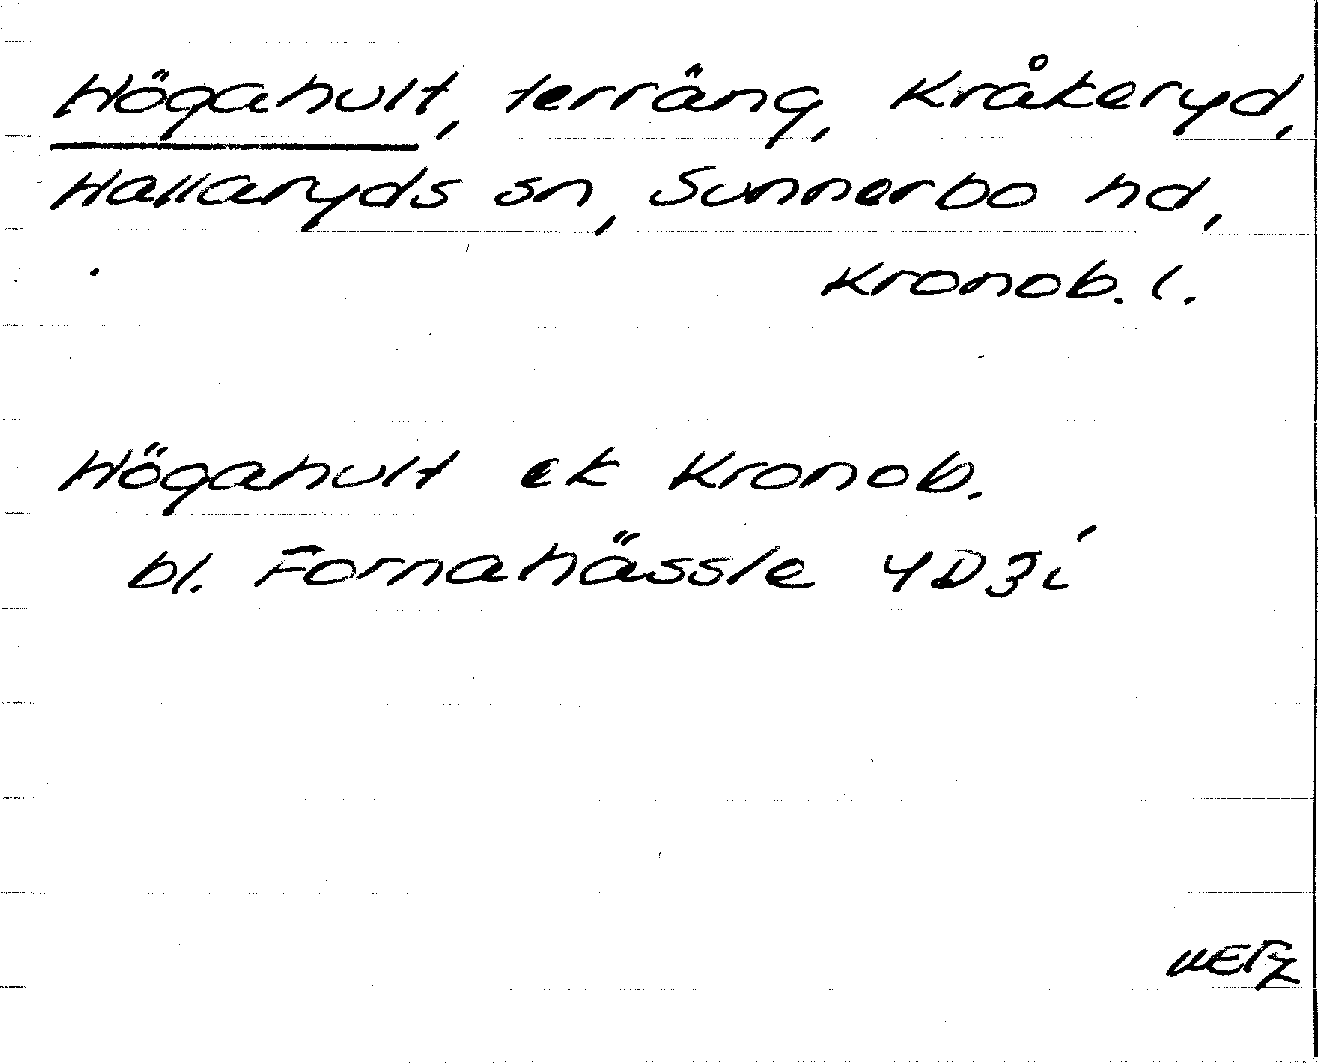 Högahult, terräng, Kråkeryd,
Hallaryds sn, Sunnerbo hd,
Kronob. l.
Högahult ek Kronob.
bl. Fornahässle 4D3i